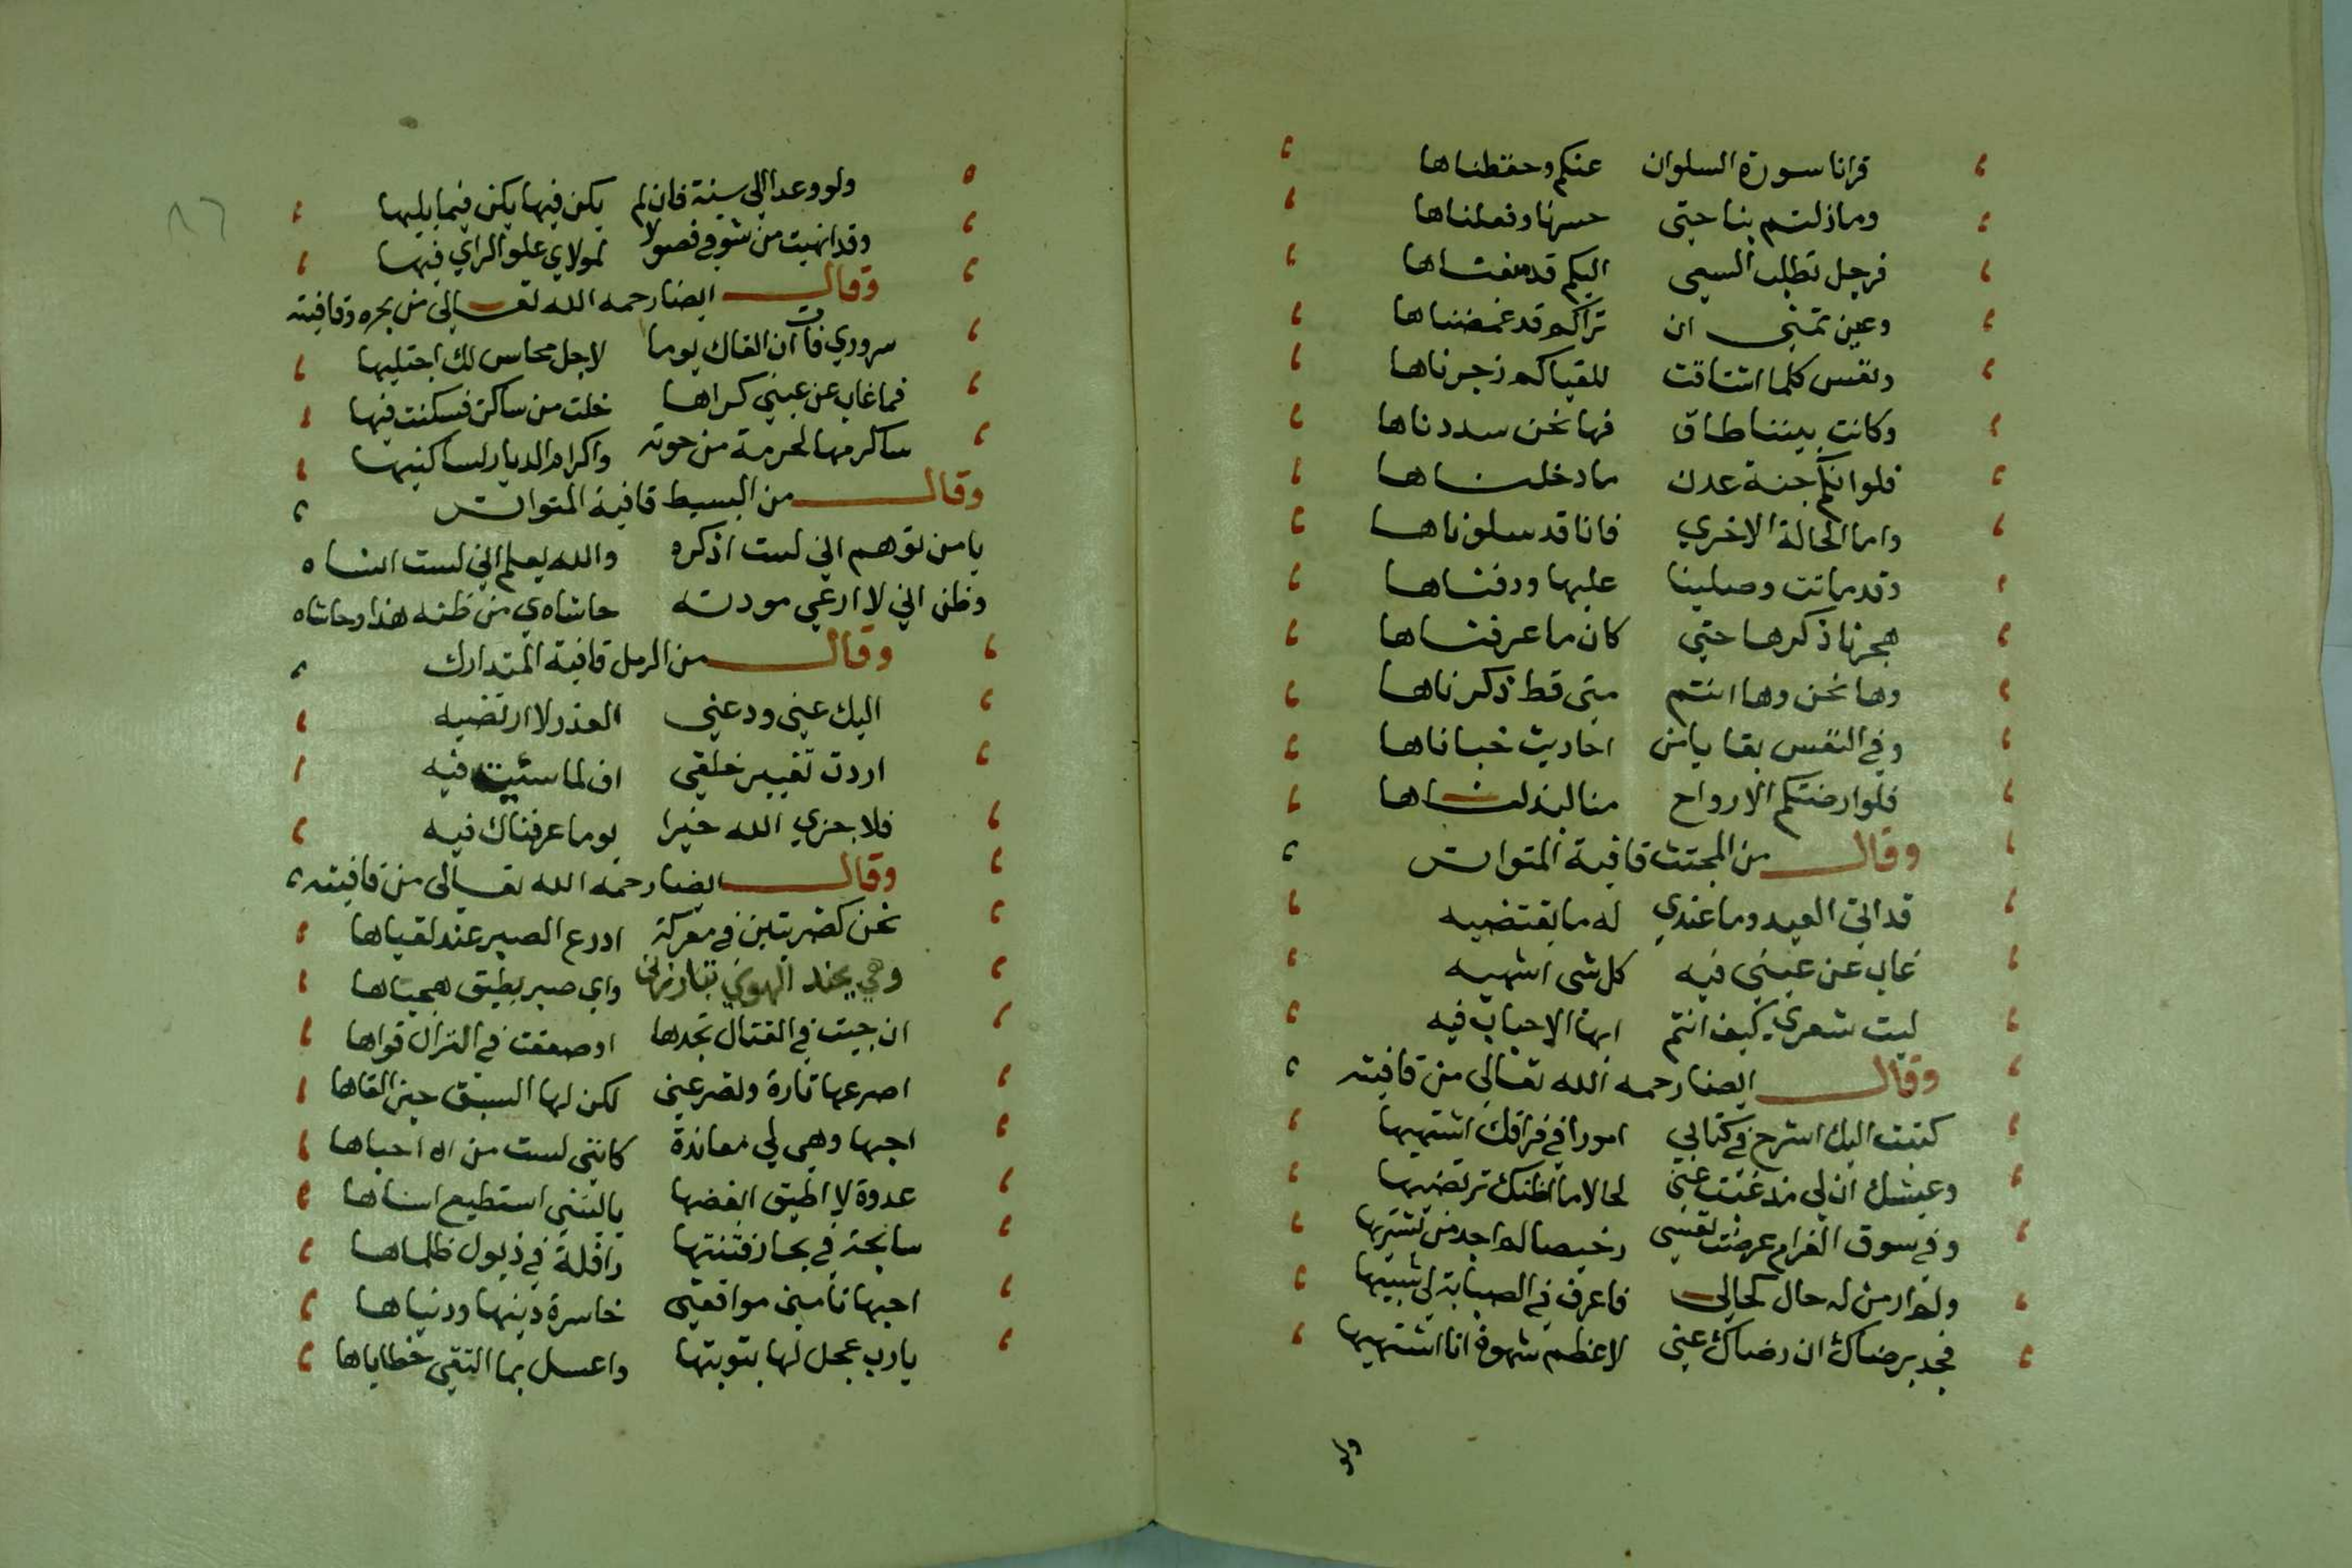 قرانا سورة السلوان عنكم وحفظناها
وما زلتم بنا حتى حسرنا وفعلناها
فرجل تطلب السعي اليكم قد منعناها
وعين تمني ان تراكم قد غمضناها
ونفس كلما اشتاقت للقياكم زجرناها
وكانت بيننا طاق فها نحن سددناها
فلو انكم جنة عدن ما دخلناها
واما الحالة الاخري فانا قد سلوناها
وقد ماتت وصلينا عليها ودفناها
هجرنا ذكرها حتي كان ما عرفناها
وها نحن وها انتم متى قط ذكرناها
وفي النفس بقايا من احاديث خباناها
فلو ارضتكم الارواح منا لبذلناها
وقال من المجتث قافية المتواتر
قد اتى العيد وما عندي له ما يقتضيه
غاب عن عيني فيه كل شى اشتهيه
ليت شعري كيف انتم ايها الاحباب فيه
وقال ايضا رحمه الله تعالى من قافيته
كتبت اليك اشرح في كتابي امورا في فراقك اشتهيها
وعيشك ان لي مذ غبت عني لحالا ما اظنك ترتضيها
وفي سوق الغرام عرضت نفسي رخيصا لم اجد من يشتريها
ولم ار من له حال كحالي فاعرف في الصبابة لي شبيها
فجد برضاك ان رضاك عني لاعظم شهوة انا اشتهيها
ولو
٨٦
ولو وعدا الى سنة فان لم يكن فيها يكن فيما يليها
وقد انهيت من شوقي فصولا لمولاي علو الراي فيها
وقال ايضا رحمه الله تعالى من بحره وقافيته
سروري فات ان القاك يوما لاجل محاسن لك اجتليها
فما غاب عن عيني كراها خلت من ساكن فسكنت فيها
ساكرمها لحرمة من حوته واكرام الديار لساكنيها
وقال من البسيط قافية المتواتر
يا من توهم اني لست اذكره والله يعلم اني لست انساه
وظن اني لا ارعي مودته حاشاه من ظنه هذا وحاشاه
وقال من الرمل قافية المتدارك
اليك عني ودعني العذر لا ارتضيه
اردت تغيير خلقي اف لما سئيت فيه
فلا جزي الله خيرا يوما عرفناك فيه
وقال ايضا رحمه الله تعالى من قافيته
نحن كضربتين في معركة ادرع الصبر عند لقياها
وهي بجند الهوي تبارزني واي صبر يطيق هيجاها
ان جيت في القتال تجدها او ضعفت في النزال قواها
اصرعها تارة وتصرعني لكن لها السبق حين القاها
احبها وهي لي معاندة كانني لست من احباها
عدوة لا اطيق ابغضها يا ليتني استطيع انساها
سابحة في بحار فتنتها رافلة في ذيول ظلماها
احبها تامني مواقعتي خاسرة دينها ودنياها
يا رب عجل لها بتوبتها واغسل بما التقي خطاياها